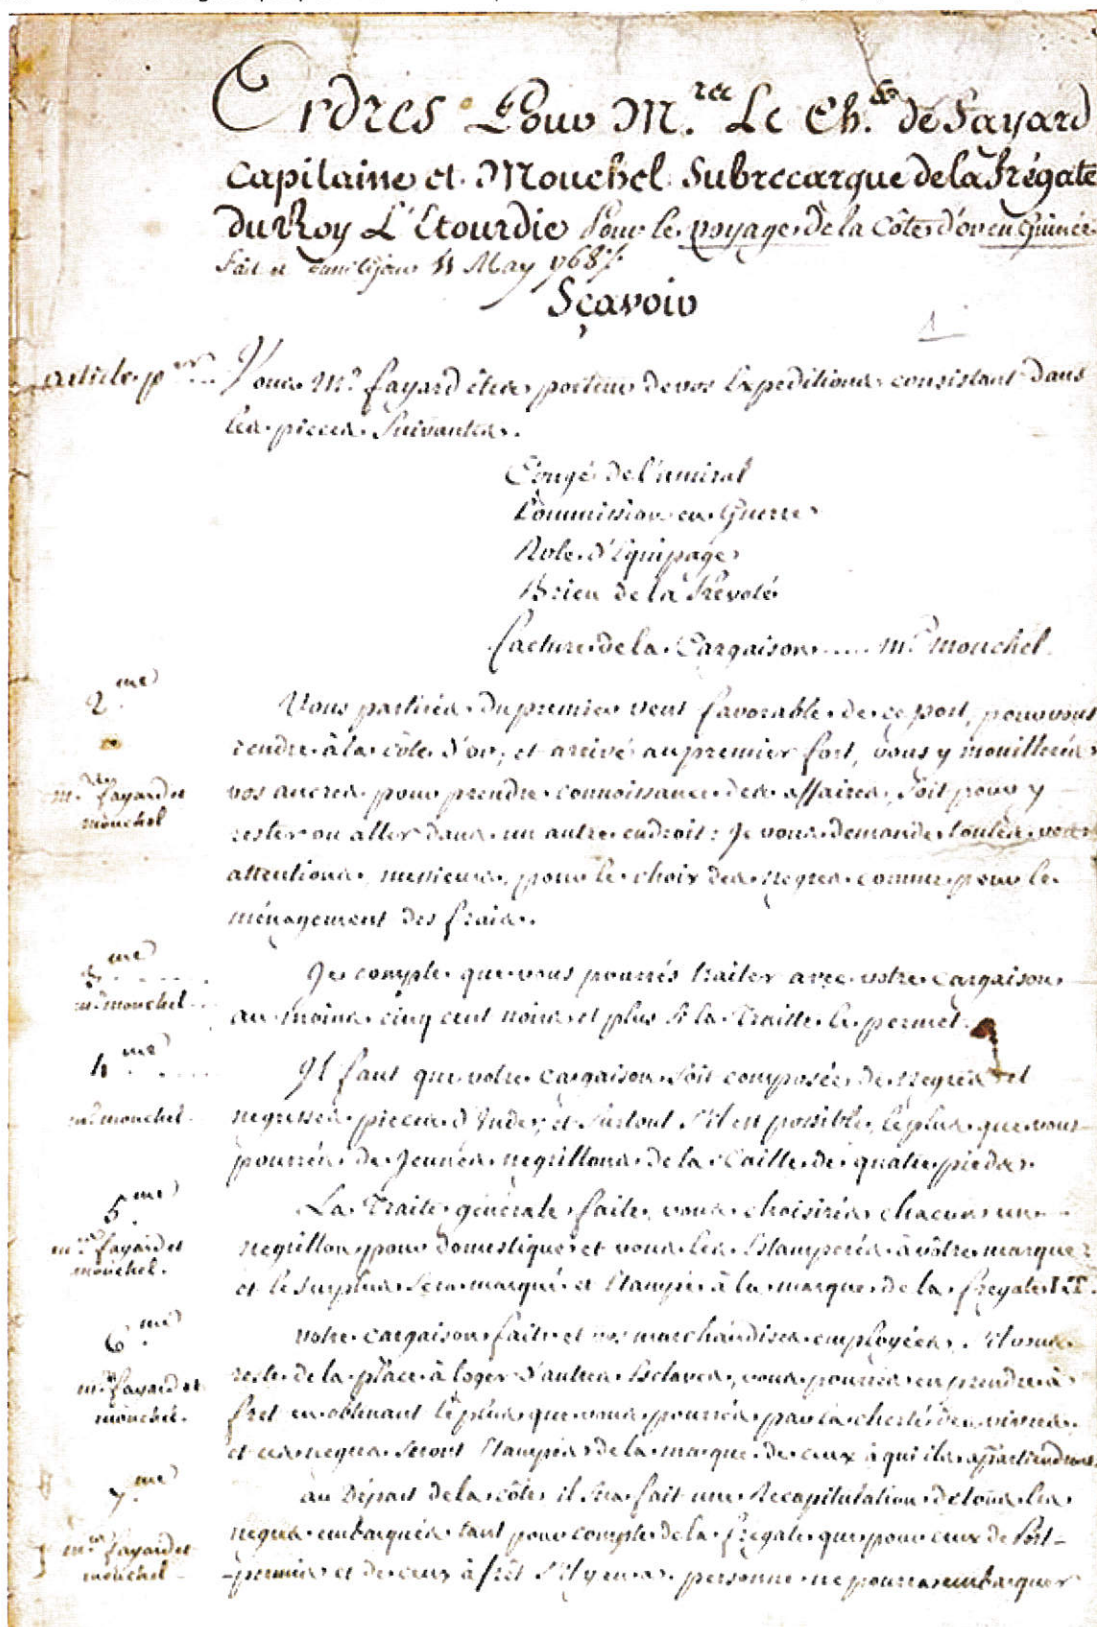 Ordres Pour M.rs Le Ch.er de Fayard
Capitaine et Mouchel Subrecargue de la Frégate
du Roy L'Etourdie Pour le voyage de la Côte d'or en Guinée
Fait et 11 May 1768
Sçavoir
1
article p.er Vous M.r fayard étes porteur de vos Expeditions consistant dans
les pieces Suivantes.
Congé de l'amiral
Commission en Guerre
Role d'Equipage
Brieu de la Prévoté
facture de la Cargaison .... m.r mouchel
2.me
m.rs fayard et
mouchel
Vous partirés du premier vent favorable de ce port, pour vous
rendre à la côte d'or, et arrivé au premier fort, vous y mouillerés
vos ancres pour prendre connoissance des affaires, soit pour y
rester ou aller dans un autre endroit: Je vous demande toutes vos
attentions, messieurs, pour le choix des negres comme pour le
ménagement des frais.
3.me
m.r mouchel
Je compte que vous pourrés traiter avec votre cargaison
au moins cinq cent noirs et plus si la Traitte le permet.
4.me
m.r mouchel
Il faut que votre cargaison soit composée de Negres et
negresses pieces d'Indes, et surtout s'il est possible, le plus que vous
pourrés de Jeunes negrillons de la taille de quatre pieds.
5.me
m.rs fayard et
mouchel.
La Traite générale faite, vous choisirés chacun un
negrillon pour domestique et vous les Estamperés à vôtre marque
et le surplus sera marqué et Etampé à la marque de la fregate LET.
6.me
m.rs fayard et
mouchel.
Votre cargaison faite et vos marchandises employées, s'il vous
reste de la place à loger d'autres Esclaves, vous pourrés en prendre à
fret en obtenant le plus que vous pourrés par la cherté des vivres
et ces negres seront Etampés de la marque de ceux à qui ils appartiendront
7.me
m.rs fayard et
mouchel
au Départ de la côte il sera fait une Recapitulation de tous les
negres embarqués tant pour compte de la fregate que pour ceux de Port-
-permis et de ceux à frêt s'il y en a. personne ne pourra embarquer